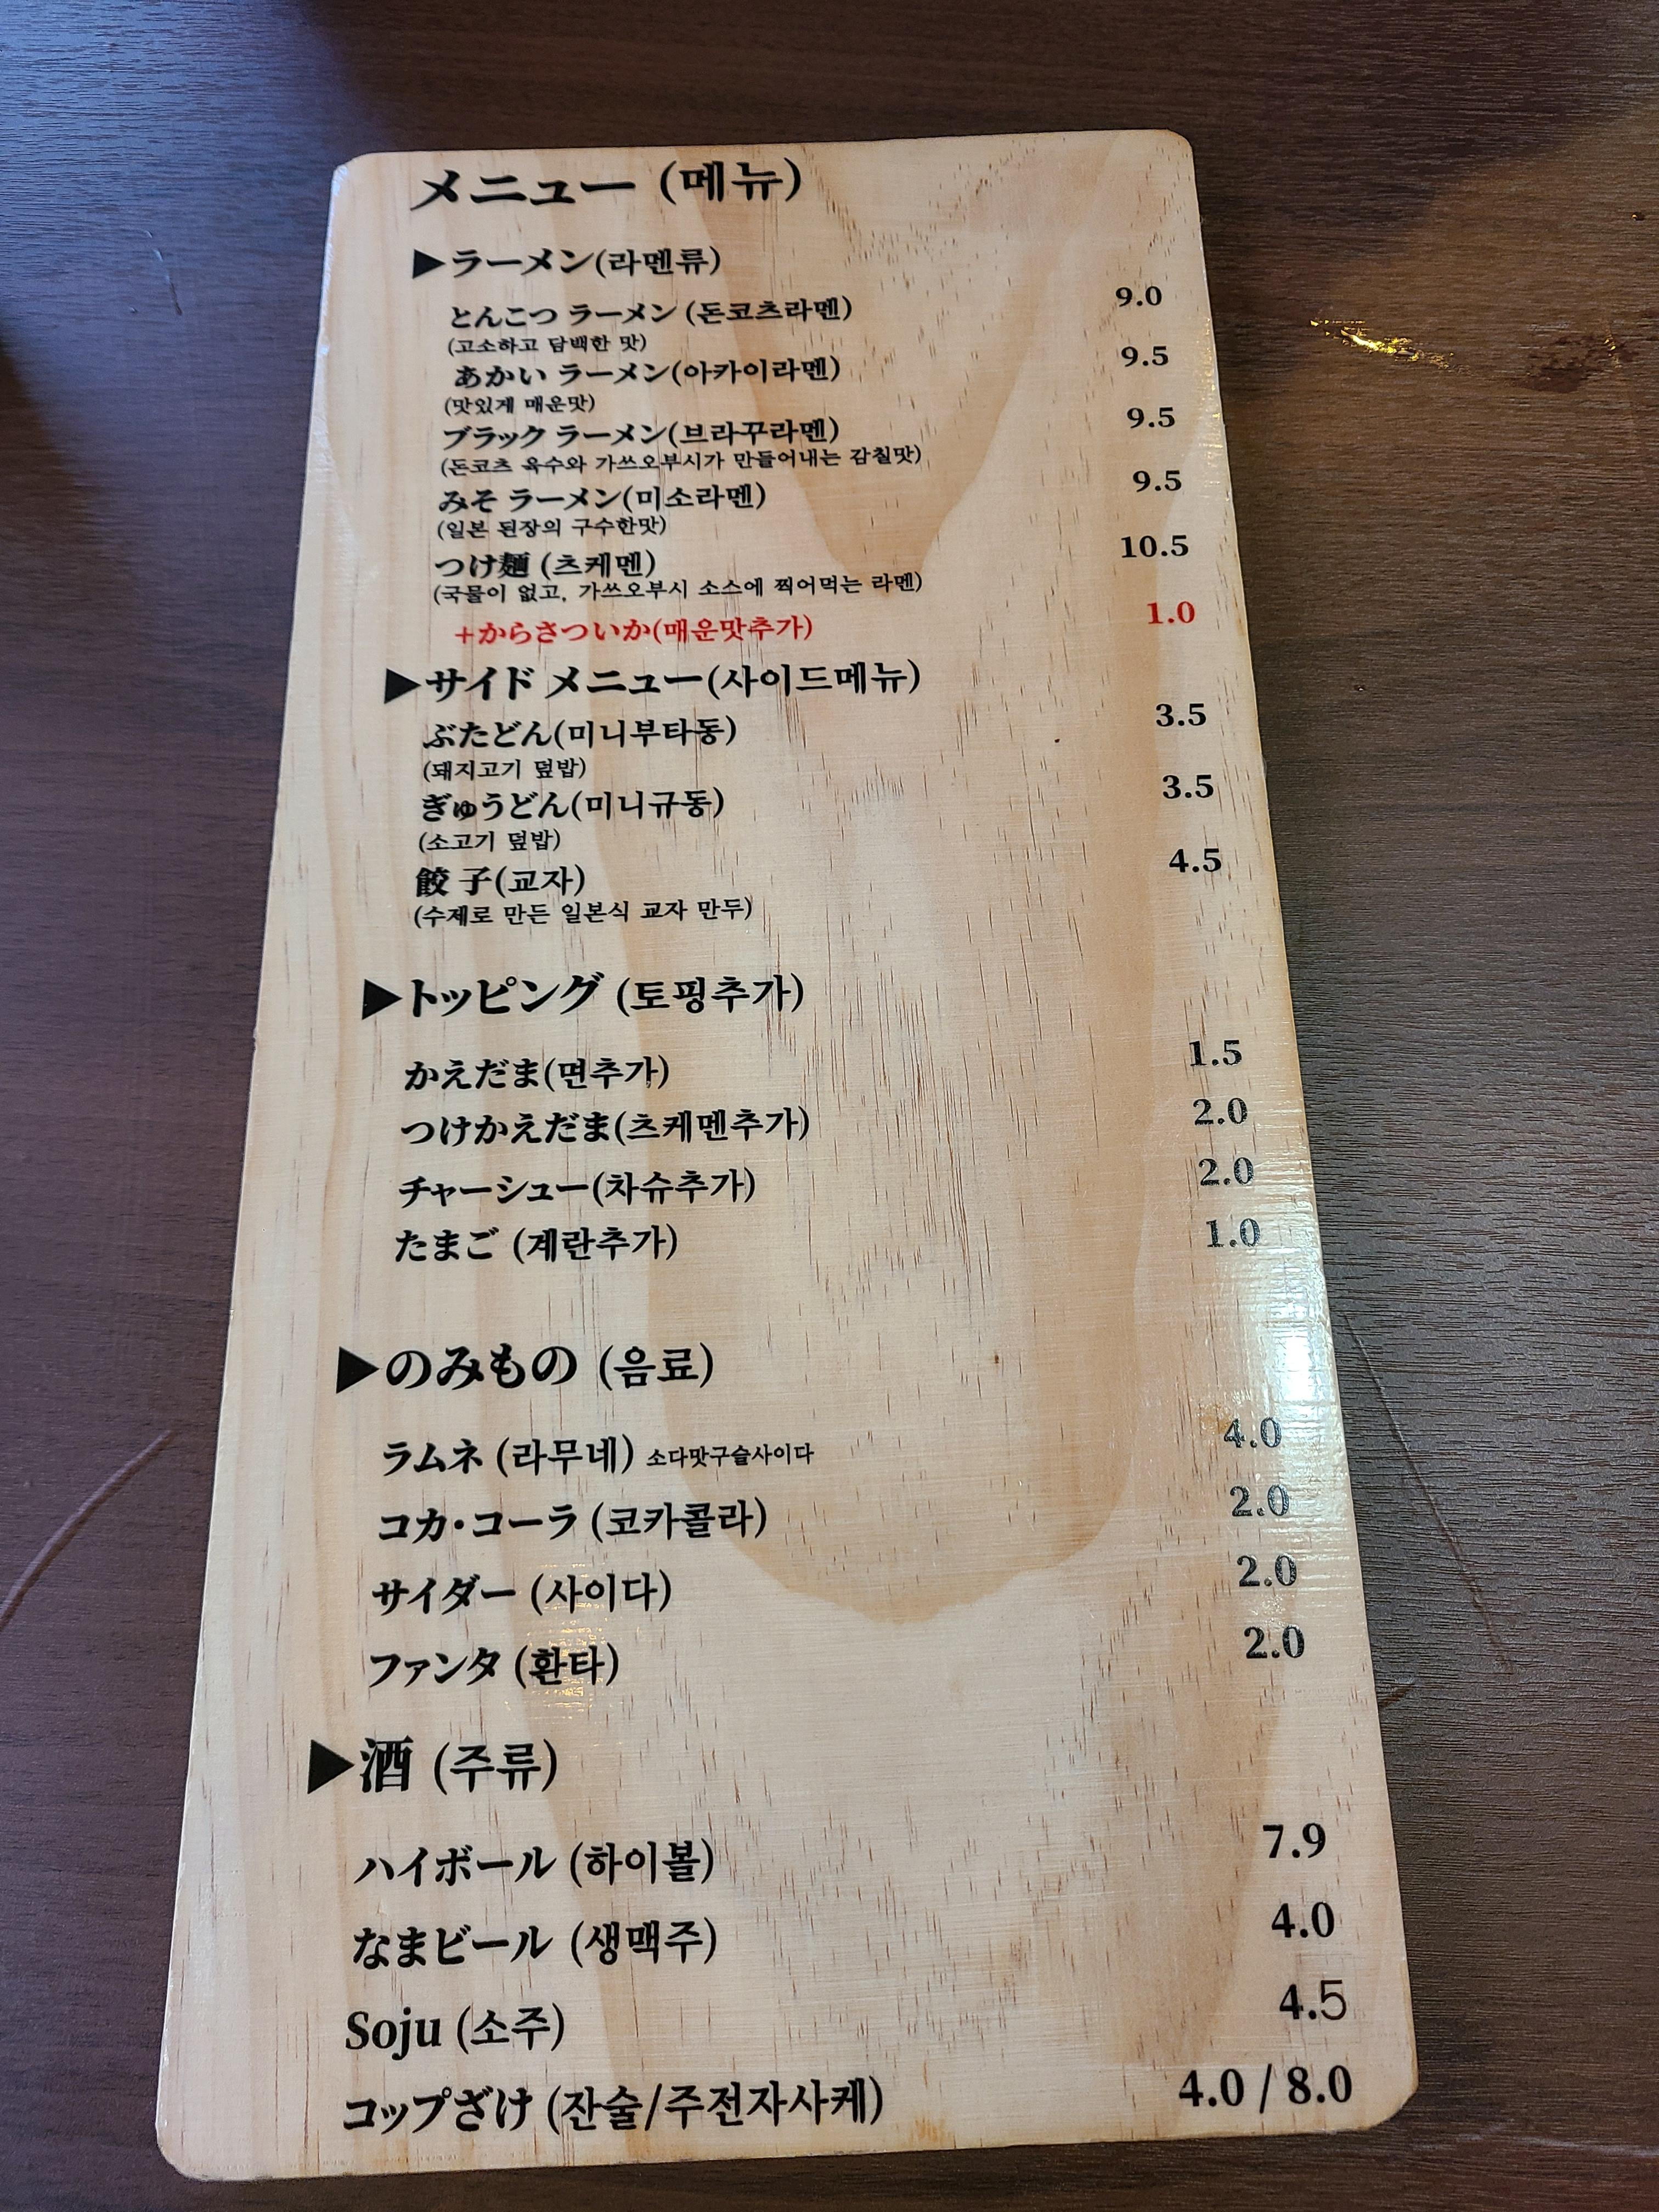 メニュー (메뉴)
▶ラーメン(라멘류)
とんこつ ラーメン (돈코츠라멘) 9.0
(고소하고 담백한 맛)
あかい ラーメン(아카이라멘) 9.5
(맛있게 매운맛)
ブラック ラーメン(브라꾸라멘) 9.5
(돈코츠 육수와 가쓰오부시가 만들어내는 감칠맛)
みそ ラーメン(미소라멘) 9.5
(일본 된장의 구수한맛)
つけ麺 (츠케멘) 10.5
(국물이 없고, 가쓰오부시 소스에 찍어먹는 라멘)
+からさついか(매운맛추가) 1.0
▶サイド メニュー(사이드메뉴)
ぶたどん(미니부타동) 3.5
(돼지고기 덮밥)
ぎゅうどん(미니규동) 3.5
(소고기 덮밥)
餃子(교자) 4.5
(수제로 만든 일본식 교자 만두)
▶トッピング (토핑추가)
かえだま(면추가) 1.5
つけかえだま(츠케멘추가) 2.0
チャーシュー(차슈추가) 2.0
たまご (계란추가) 1.0
▶のみもの (음료)
ラムネ (라무네) 소다맛구슬사이다 4.0
コカ・コーラ (코카콜라) 2.0
サイダー (사이다) 2.0
ファンタ (환타) 2.0
▶酒 (주류)
ハイボール (하이볼) 7.9
なまビール (생맥주) 4.0
Soju (소주) 4.5
コップざけ (잔술/주전자사케) 4.0 / 8.0